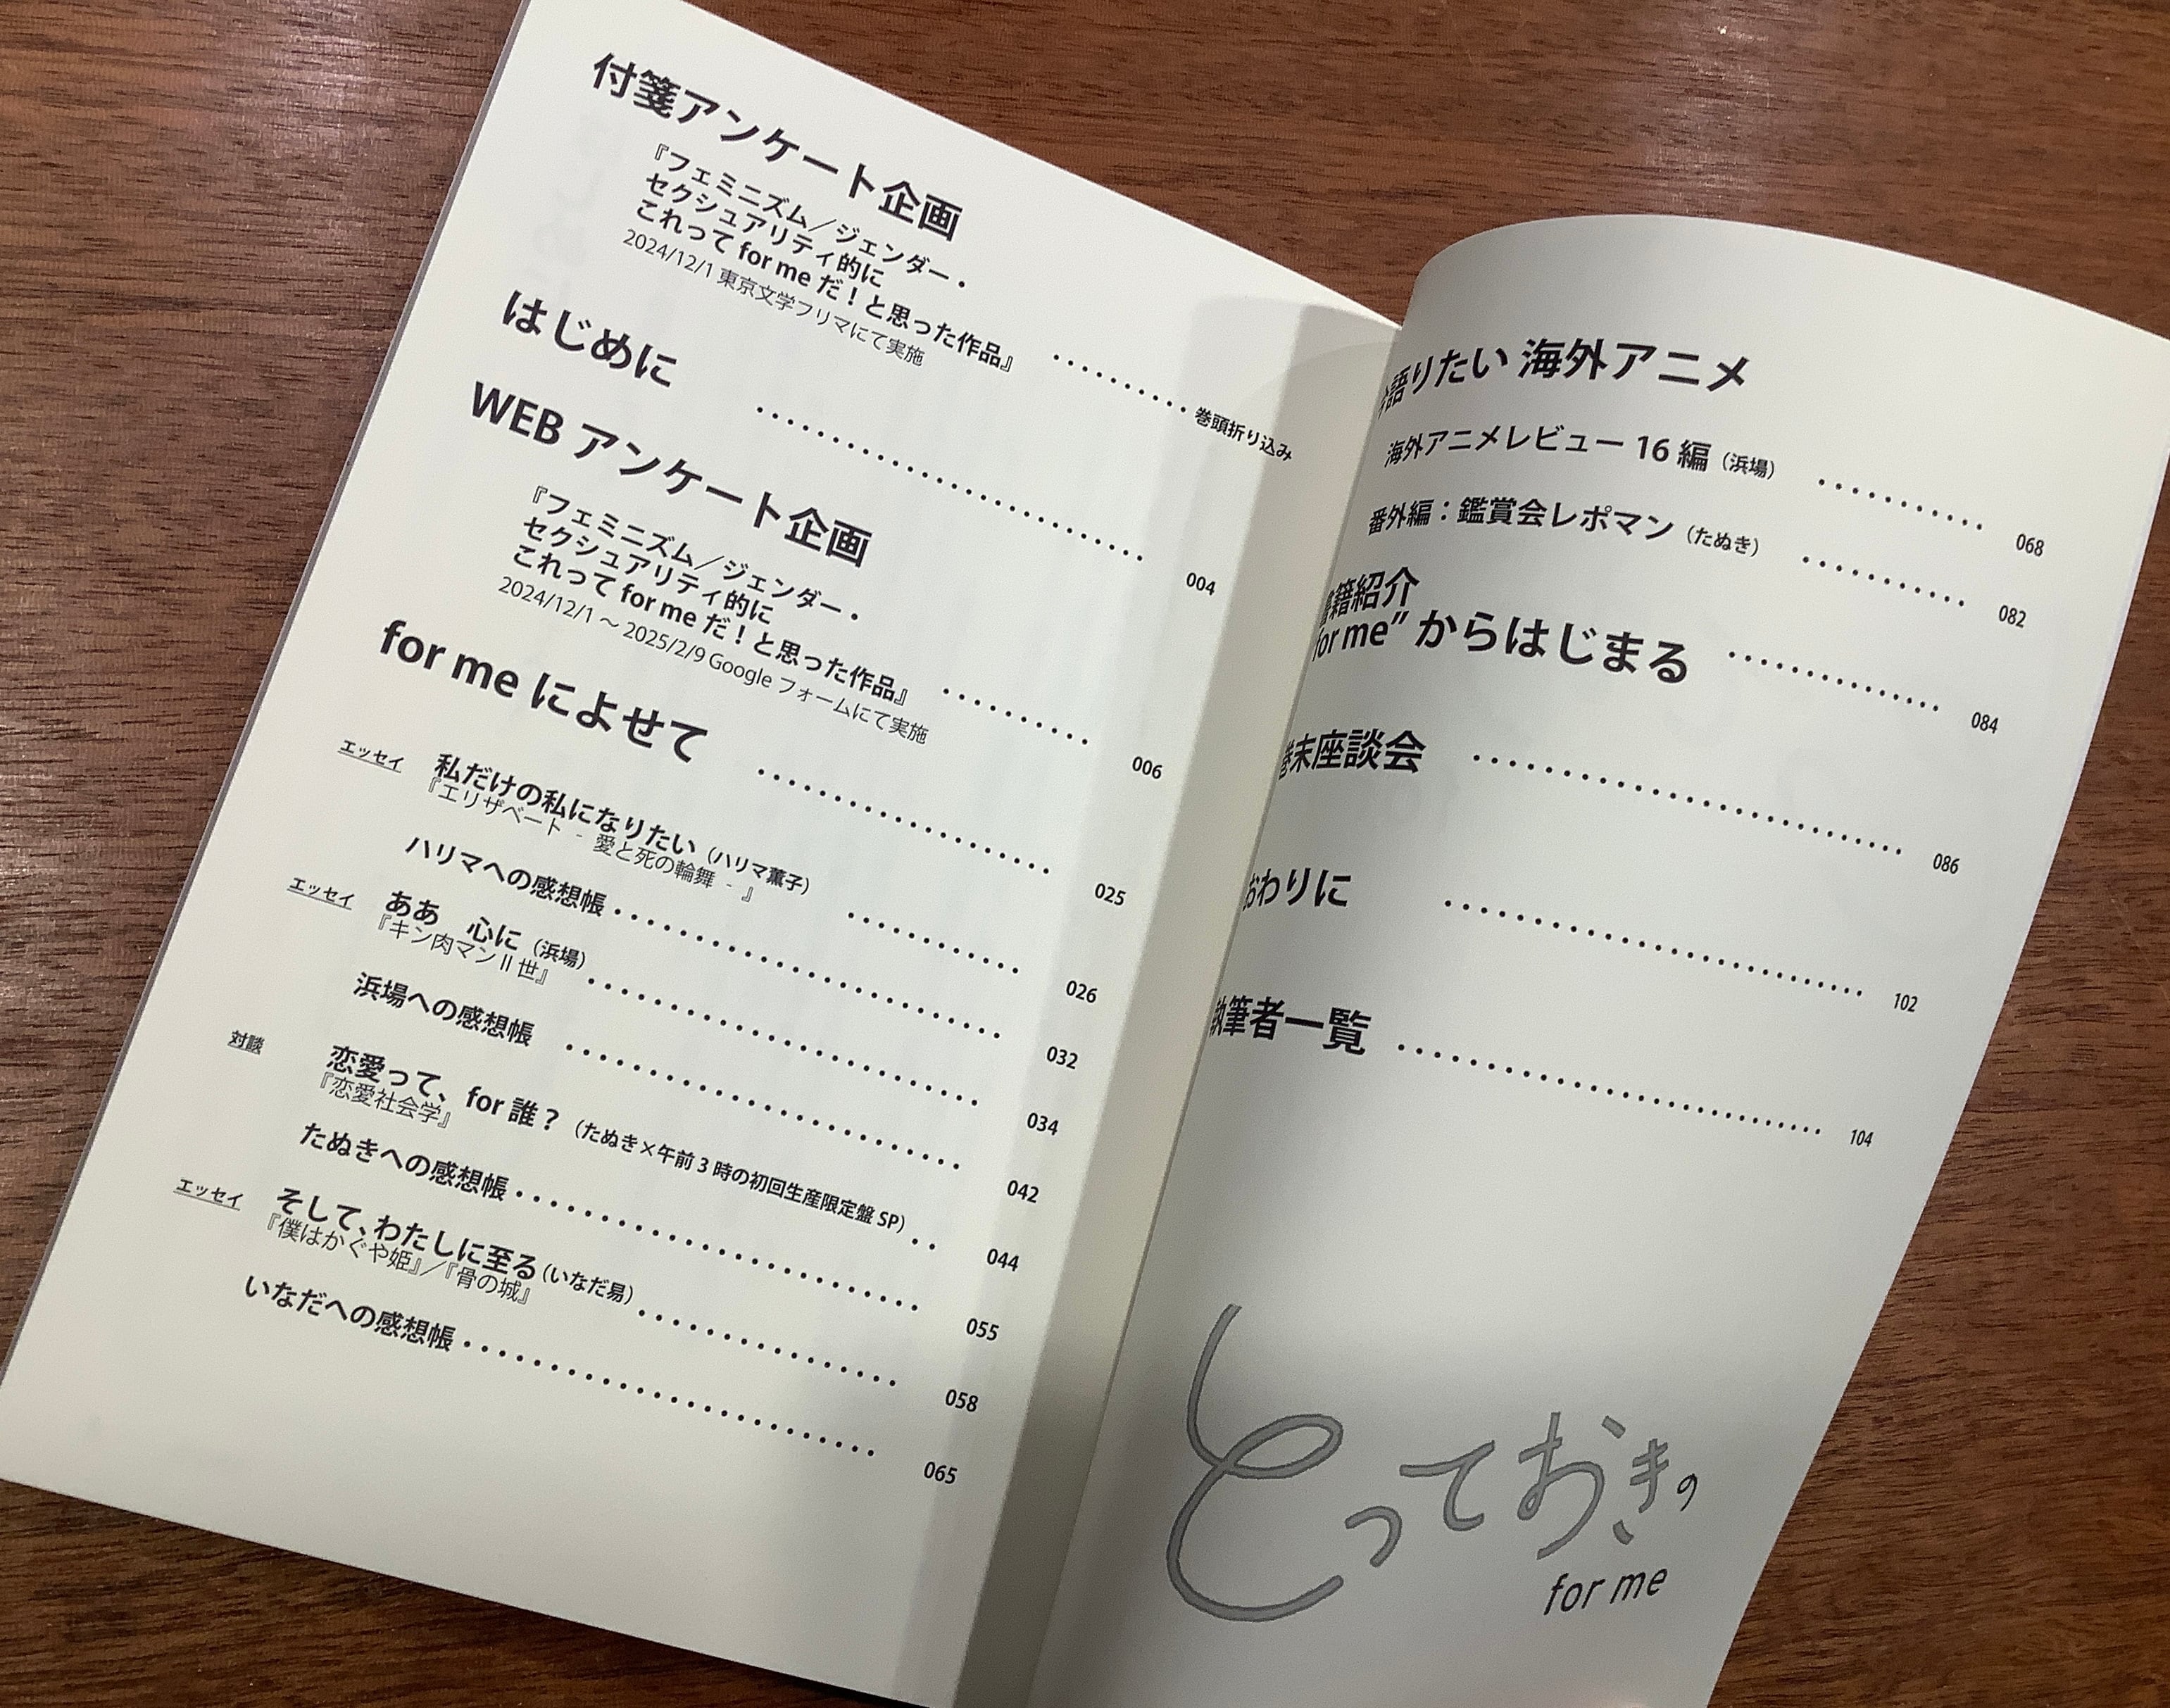 付箋アンケート企画
『フェミニズム／ジェンダー・
セクシュアリティ的に
これって for me だ！と思った作品』 ………… 巻頭折り込み
2024/12/1 東京文学フリマにて実施
はじめに ………… 004
WEB アンケート企画
『フェミニズム／ジェンダー・
セクシュアリティ的に
これって for me だ！と思った作品』 ………… 006
2024/12/1 ～ 2025/2/9 Google フォームにて実施
for me によせて ………… 025
エッセイ 私だけの私になりたい（ハリマ薫子） ………… 026
『エリザベート - 愛と死の輪舞 - 』
ハリマへの感想帳 ………… 032
エッセイ ああ　心に（浜場） ………… 034
『キン肉マンⅡ世』
浜場への感想帳 ………… 042
対談 恋愛って、for 誰？（たぬき×午前 3 時の初回生産限定盤 SP） ‥ 044
『恋愛社会学』
たぬきへの感想帳 ………… 055
エッセイ そして、わたしに至る（いなだ易） ………… 058
『僕はかぐや姫』／『骨の城』
いなだへの感想帳 ………… 065
語りたい 海外アニメ
海外アニメレビュー 16 編（浜場） ………… 068
番外編：鑑賞会レポマン（たぬき） ………… 082
書籍紹介
for me” からはじまる ………… 084
巻末座談会 ………… 086
おわりに ………… 102
執筆者一覧 ………… 104
とっておきの
for me